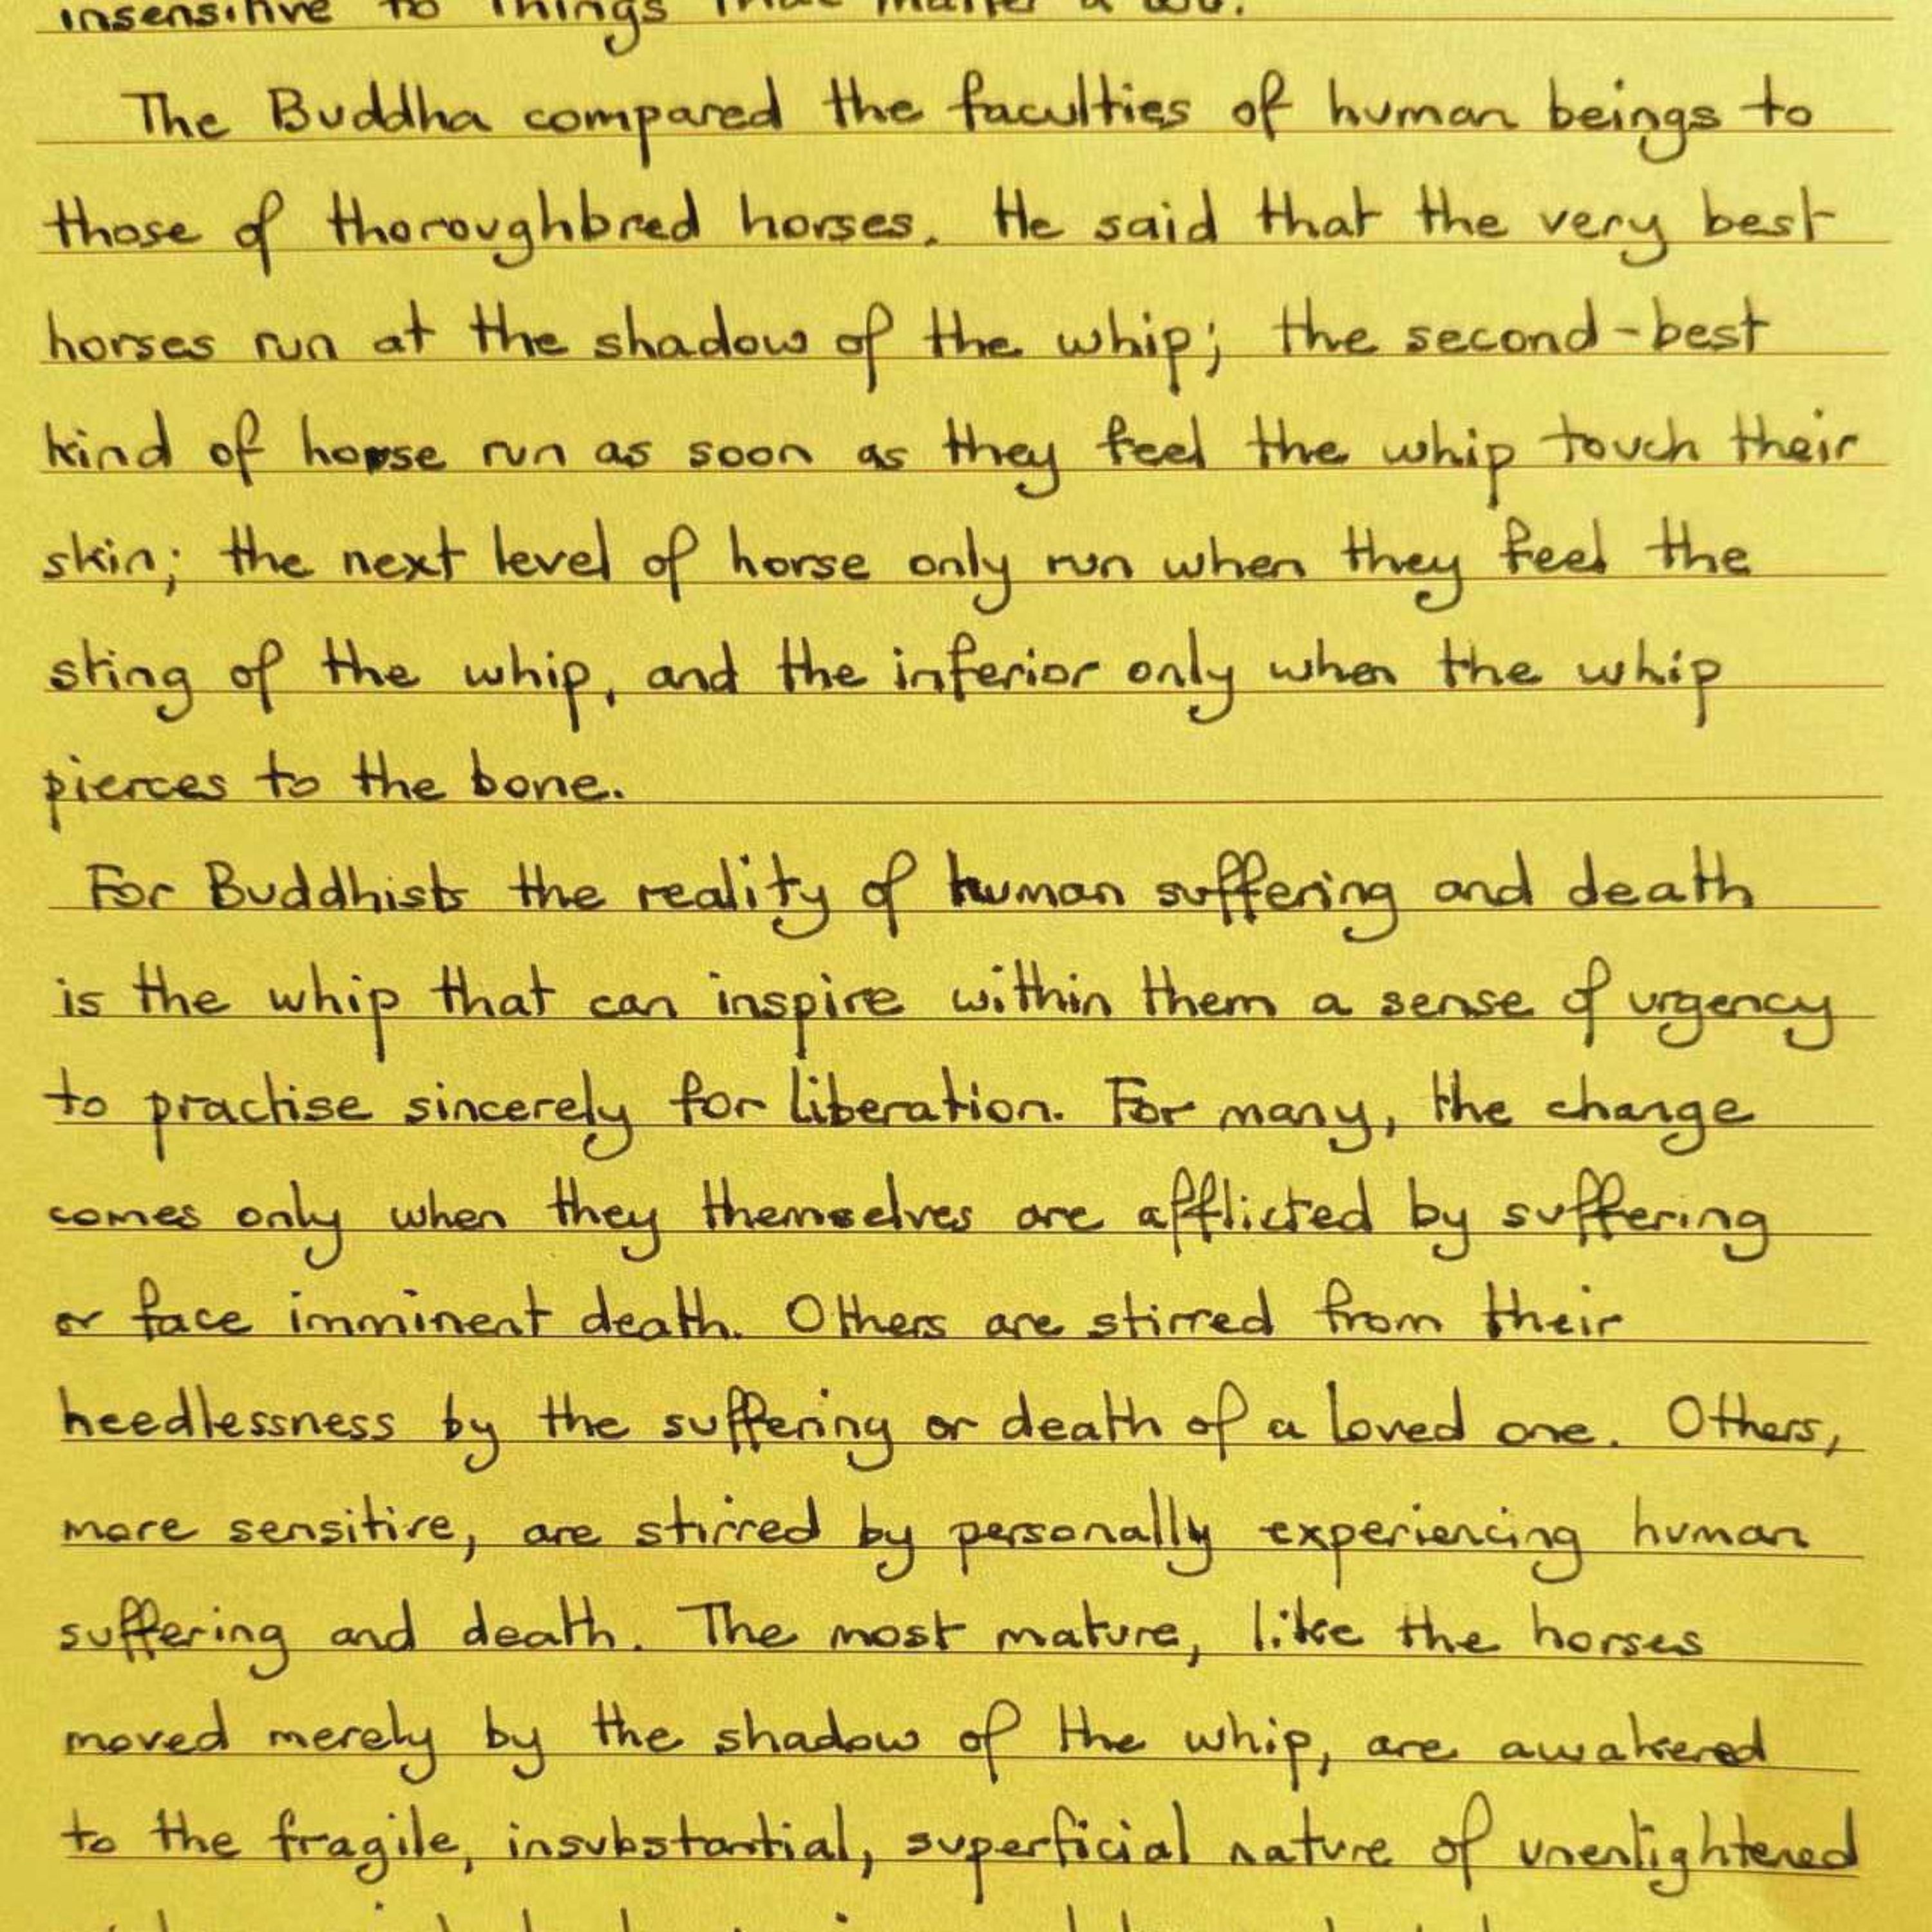 insensitive to things that matter a lot.
The Buddha compared the faculties of human beings to
those of thoroughbred horses. He said that the very best
horses run at the shadow of the whip; the second-best
kind of horse run as soon as they feel the whip touch their
skin; the next level of horse only run when they feel the
sting of the whip, and the inferior only when the whip
pierces to the bone.
For Buddhists the reality of human suffering and death
is the whip that can inspire within them a sense of urgency
to practise sincerely for liberation. For many, the change
comes only when they themselves are afflicted by suffering
or face imminent death. Others are stirred from their
heedlessness by the suffering or death of a loved one. Others,
more sensitive, are stirred by personally experiencing human
suffering and death. The most mature, like the horses
moved merely by the shadow of the whip, are awakened
to the fragile, insubstantial, superficial nature of unenlightened